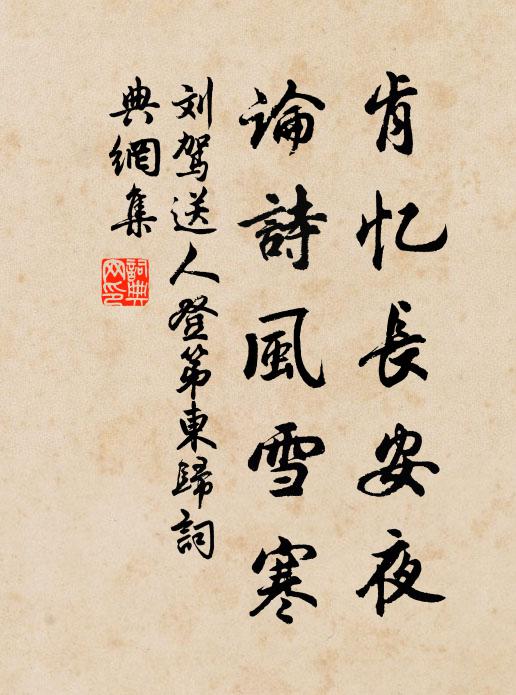 肯忆長安夜
論詩風雪寒
刘驾送人登第東歸詞
典網集
詞典
网印